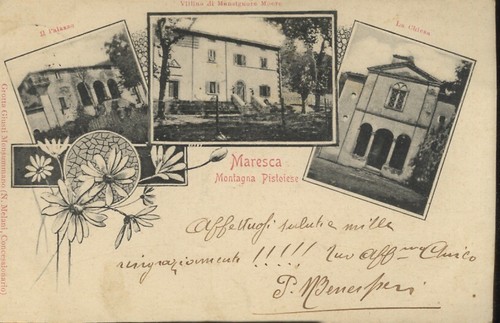 Villino di Monsignore Moore
Il Palazzo
La Chiesa
Grotta Giusti Monsummano (N. Melani, Concessionario)
Maresca
Montagna Pistoiese
Affettuosi saluti e mille
ringraziamenti !!!!! tuo Aff.mo Amico
P.